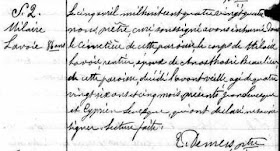 S. 2.
Hilaire
Lavoie 86 ans
Le cinq avril mil huit cent quatre vingt
nous, prêtre, curé soussigné avons inhumé dans
le cimetière de cette paroisse le corps de Hilaire
Lavoie, rentier, époux de Beaulieu
de cette paroisse, décédé l'avant veille, agé de quatre
vingt six ans et cinq mois présents
et Cyprien qui ont déclaré ne savoir
signer. Lecture faite.
E. Demers ptre